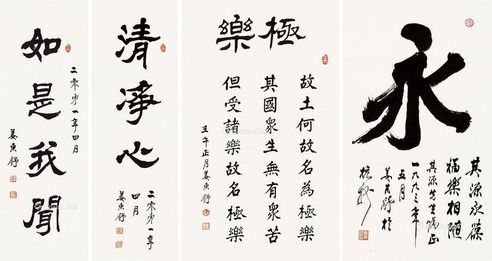 如是我聞
二零零一年四月
姜東舒
清淨心
二零零一年
四月 姜東舒
極樂
故土何故名為極樂
其國眾生無有眾苦
但受諸樂故名極樂
壬午正月姜東舒
永
其源永葆
福樂相隨
其源先生囑正
一九九三年
五月
姜東舒於
杭州